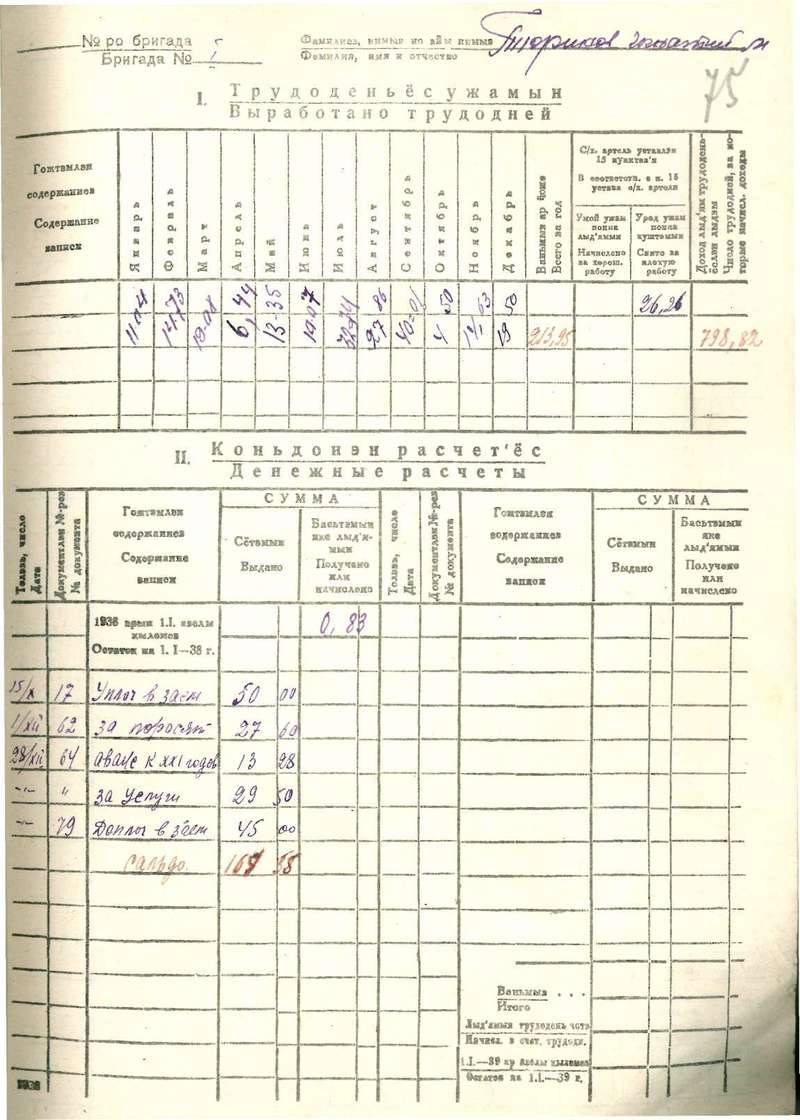 № ро бригада
Бригада №
Фамилиез, нимыз но айы нимыз
Фамилия, имя и отчество
75
I. Трудоденьёс ужамын
Выработано трудодней
Гожтэмлэн
содержаниез
Содержание
записи
Январь
Февраль
Март
Апрель
Май
Июнь
Июль
Август
Сентябрь
Октябрь
Ноябрь
Декабрь
Ваньмыз ар ӵоже
Всего за год
С/х. артель уставлэн
15 пунктэз'я
В соответств. с п. 15
устава с/х. артели
Умой ужам
понна
лыд'ямын
Начислено
за хорош.
работу
Урод ужам
понна
куштэмын
Снято за
плохую
работу
Доход лыд'ям трудодень-
ёслэн лыдзы
Число трудодней, на ко-
торые начисл. доходы
6,44
13-35
19 07
27 86
40-01
4 50
19 50
213,95
26,26
798,82
II. Коньдонэн расчет'ёс
Денежные расчеты
Толэзь, число
Дата
Документлэн №-рез
№ документа
Гожтэмлэн
содержаниез
Содержание
записи
СУММА
Сётэмын
Выдано
Басьтэмын
яке лыд'я-
мын
Получено
или
начислено
Толэзь, число
Дата
Документлэн №-рез
№ документа
Гожтэмлэн
содержаниез
Содержание
записи
СУММА
Сётэмын
Выдано
Басьтэмын
яке
лыд'ямын
Получено
или
начислено
1938 арын 1.I. азелы
кылемез
Остаток на 1. I—38 г.
0,83
15/X 17 Уплоч в заем 50 00
1/XII 62 за поросят 27 60
28/XII 64 аванс к XXI годов 13 28
-"- " за услуги 29 50
-"- 79 Доплоч в заем 45 00
сальдо.
Ваньмыз . . .
Итого
Лыд'ямын трудодень чотэ
Начисл. в счет. трудодн.
1.I.—39 ар азелы кылемез
Остаток на 1.I.—39 г.
1938